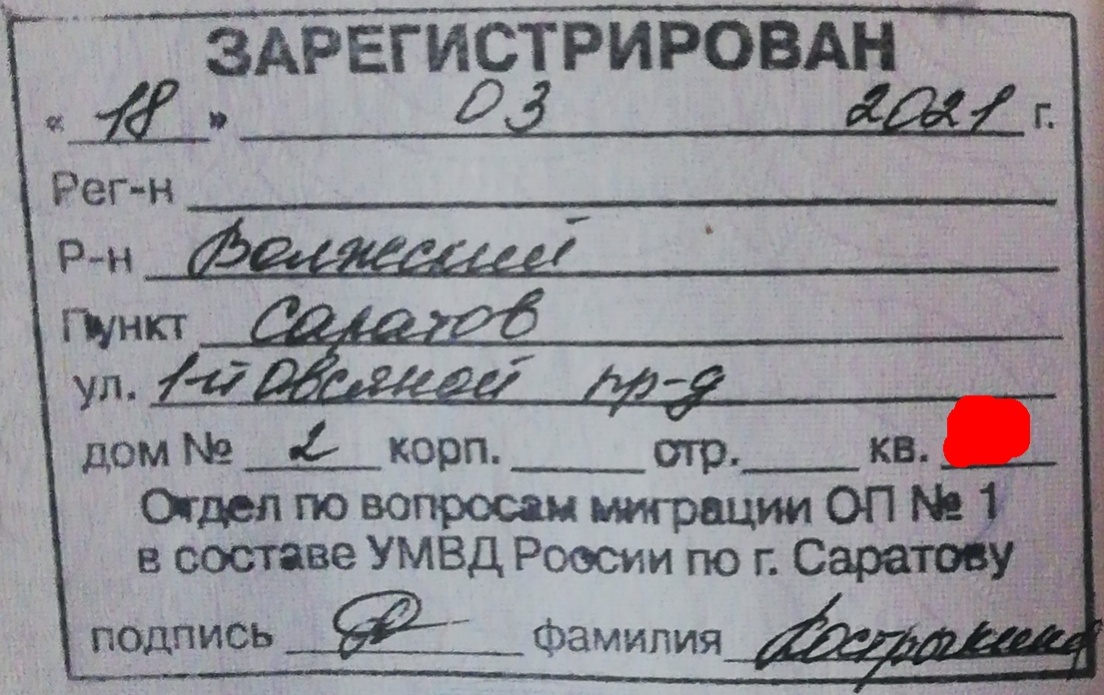 ЗАРЕГИСТРИРОВАН
« 18 » 03 2021 г.
Рег-н
Р-н Волжский
Пункт Саратов
ул. 1-й Овсяной пр-д
дом № 2 корп. стр. кв.
Отдел по вопросам миграции ОП № 1
в составе УМВД России по г. Саратову
подпись фамилия